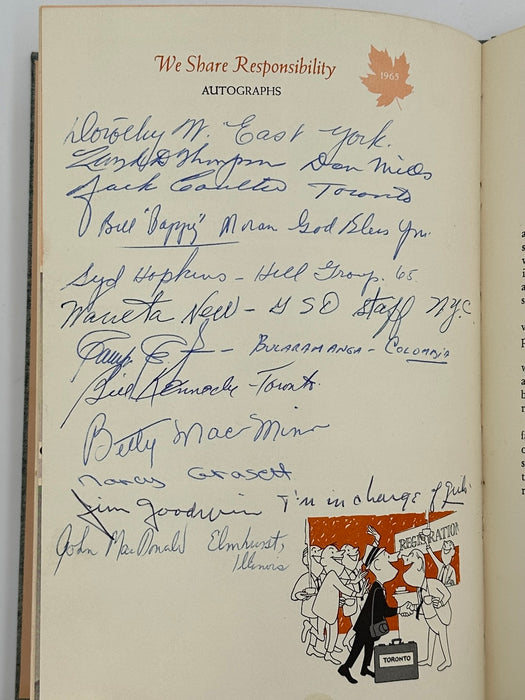 We Share Responsibility
1965
AUTOGRAPHS
Dorothy M. East York.
Thompson Don Mills
Jack Coulter Toronto
Bill "Pappy" Moran God Bless You.
Syd Hopkins - Hill Group. 65
New - GSO Staff N.Y.C.
- Bucaramanga - Colombia
Bill Kennedy - Toronto.
Betty MacMinn
Grasett
Jim Goodwin I'm in charge of
John MacDonald Elmhurst,
Illinois
REGISTRATION
TORONTO